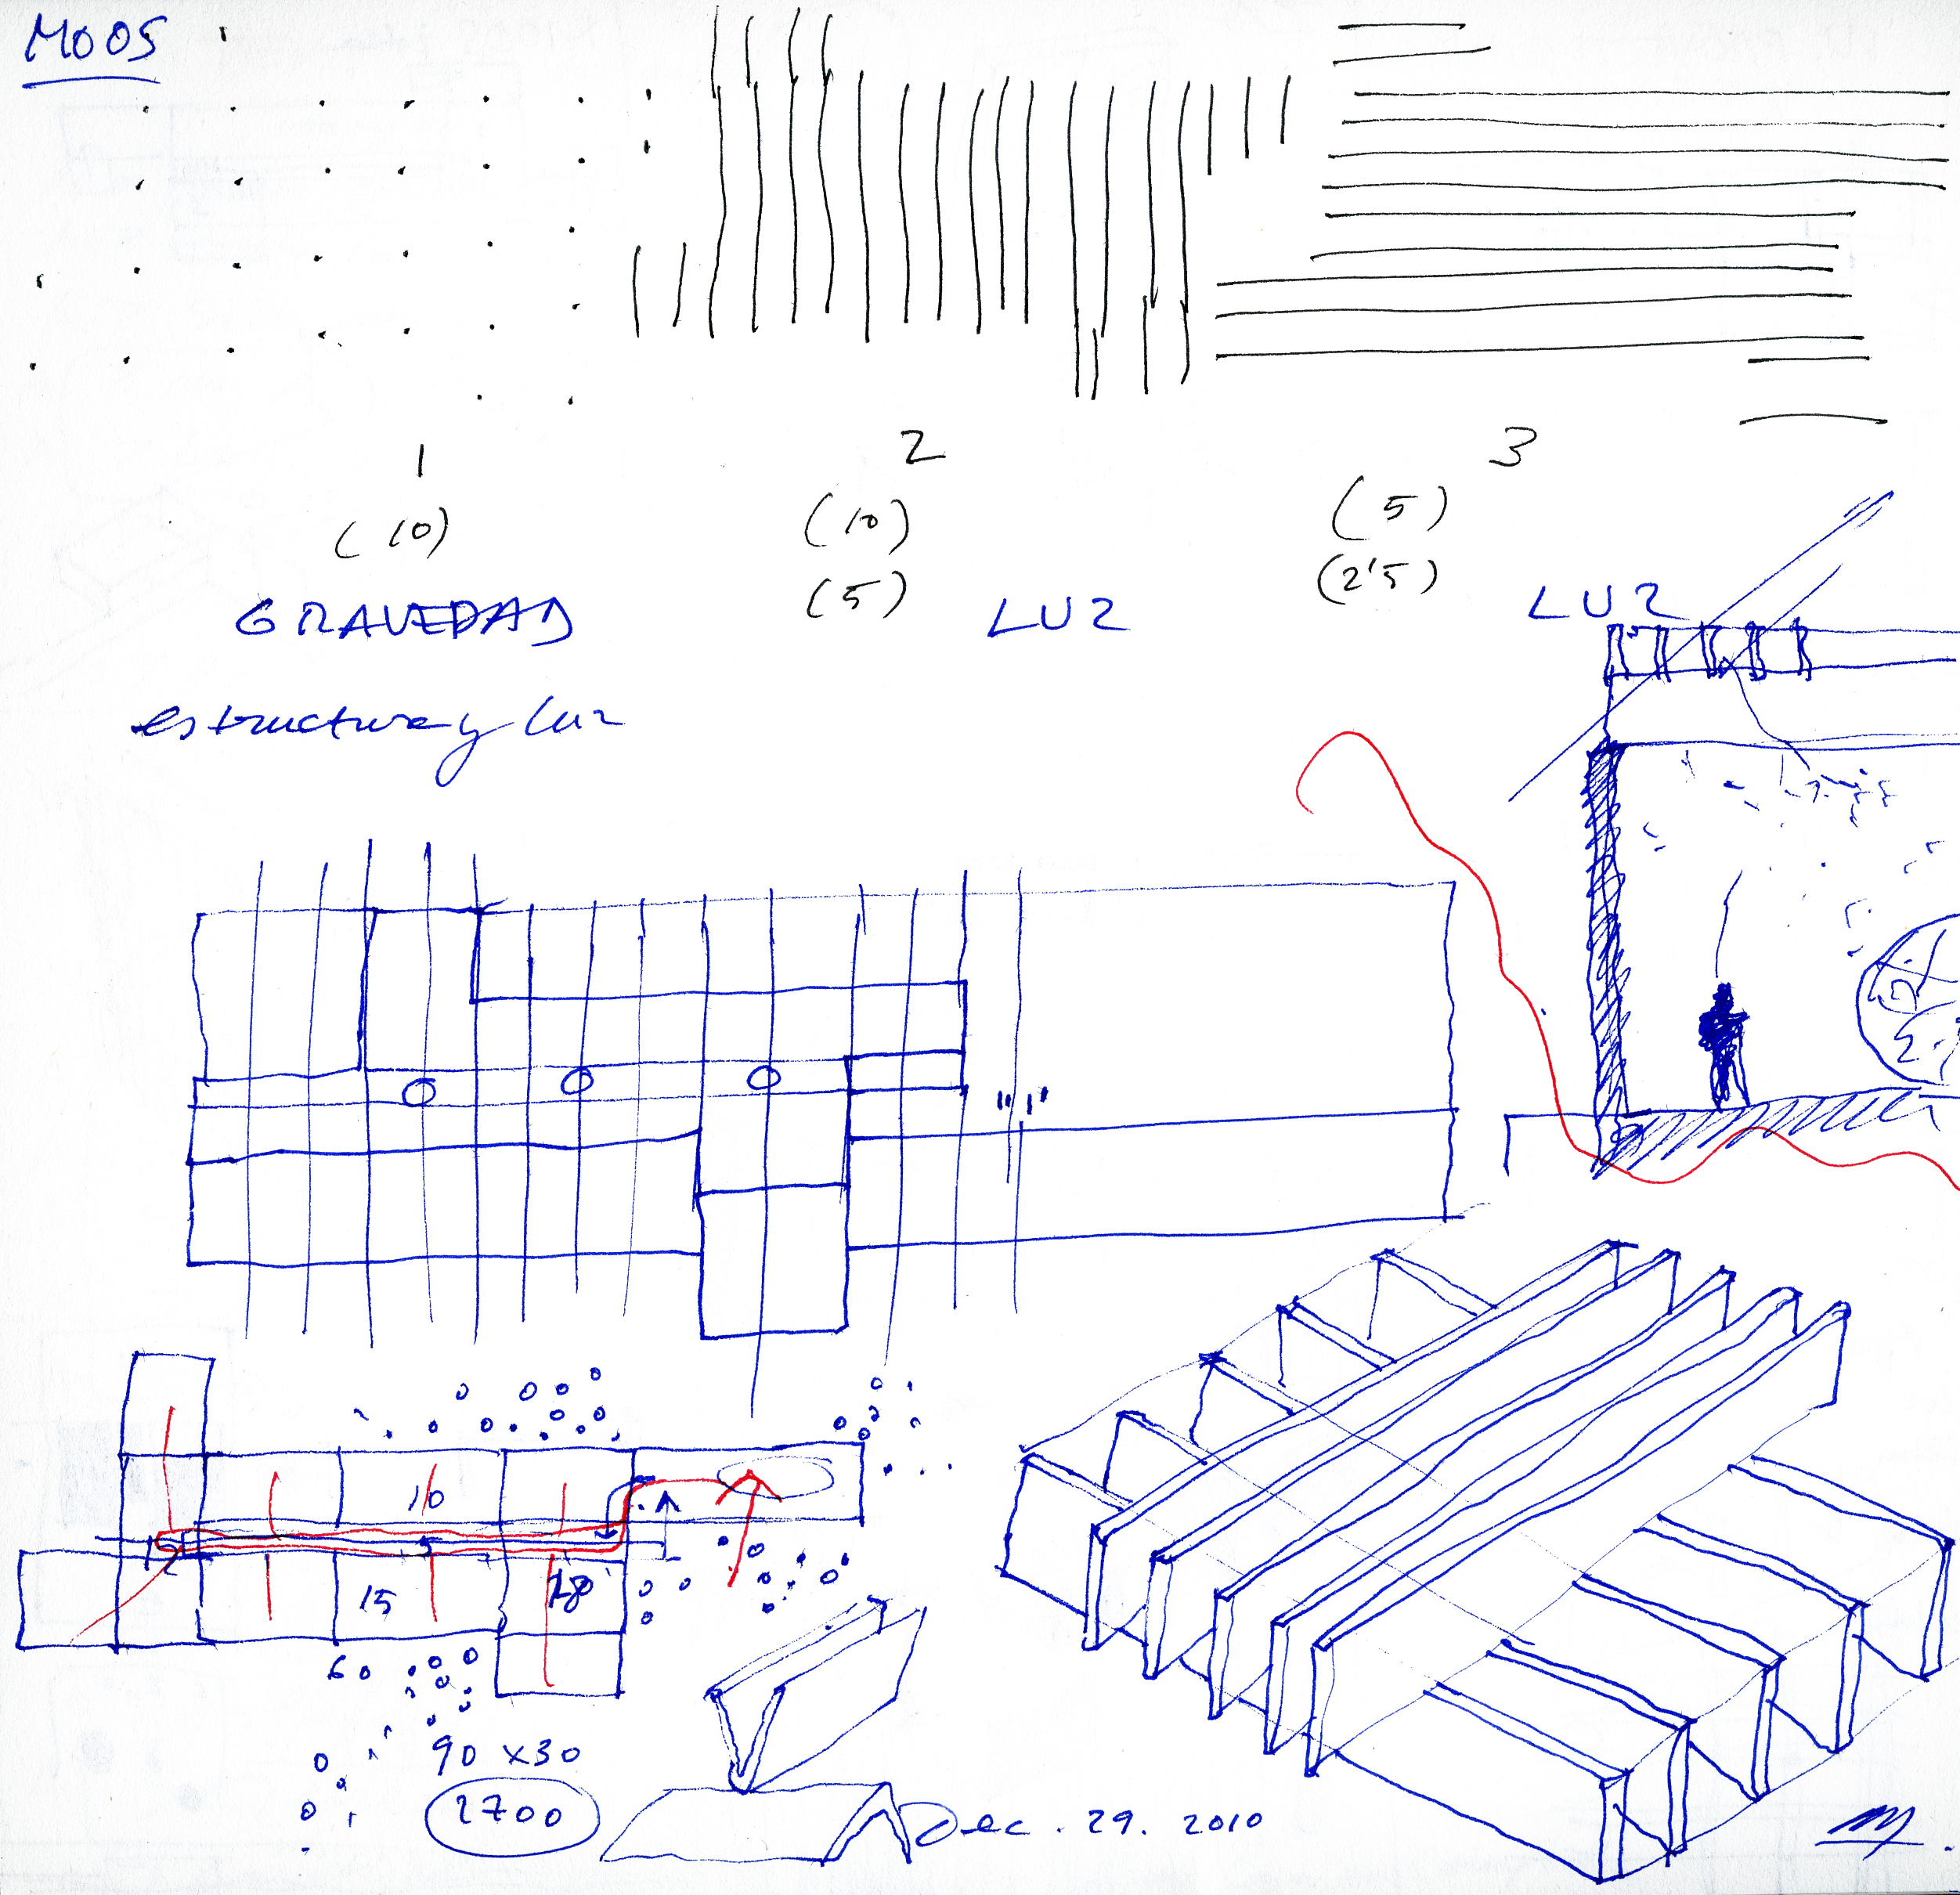 M005
1
2
3
(10)
(10)
(5)
(5)
(2'5)
GRAVEDAD
LUZ
LUZ
estructura y luz
10
15
60
90 x 30
2700
Dec. 29. 2010